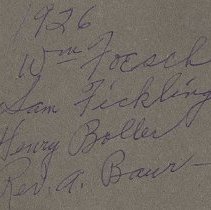 1926
Wm Foesch
Sam Fickling
Henry Bolles
Rev. A. Baur